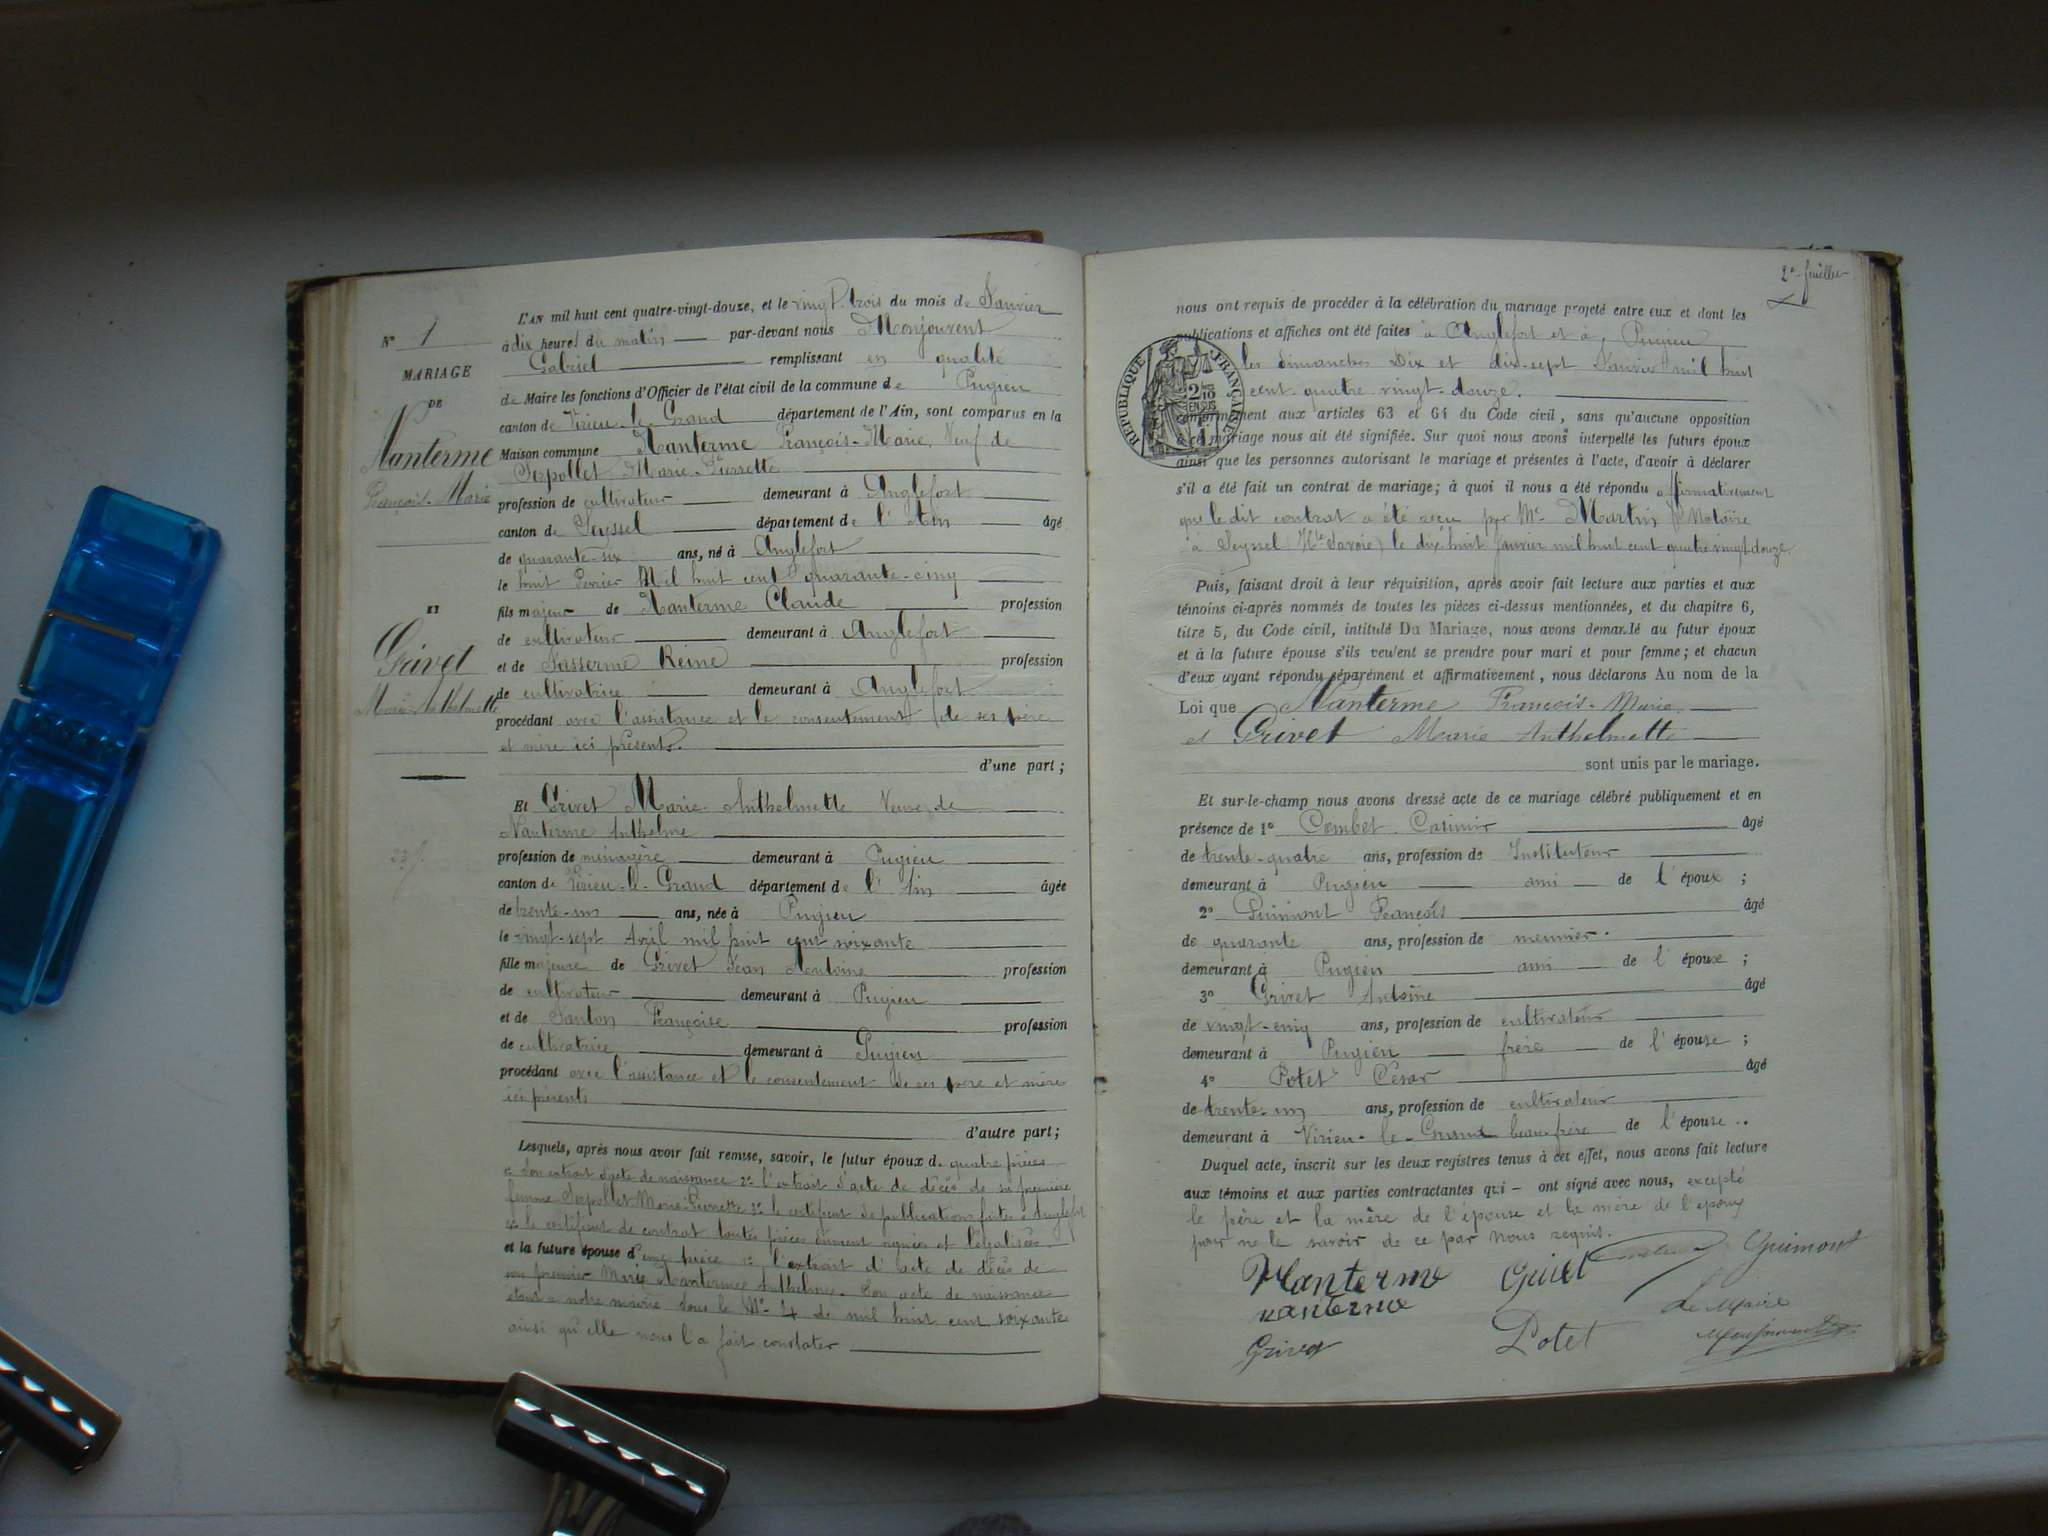 L'AN mil huit cent quatre-vingt-douze, et le vingt-trois du mois de Janvier
à dix heures du matin par-devant nous Monjouvent
Gabriel remplissant en qualité
de Maire les fonctions d'Officier de l'état civil de la commune de Pugieu
canton de Virieu-le-Grand département de l'Ain, sont comparus en la
Maison commune Nanterme François-Marie, Veuf de
Serpollet Marie-Pierrette
profession de cultivateur demeurant à Anglefort
canton de Seyssel département de l'Ain âgé
de quarante-six ans, né à Anglefort
le huit Mil huit cent quarante-cinq
fils majeur de Nanterme Claude profession
de cultivateur demeurant à Anglefort
et de Reine profession
de cultivatrice demeurant à Anglefort
procédant avec l'assistance et le consentement de ses père
et mère ici présents.
d'une part ;
Et Grivet Marie-Anthelmette Veuve de
Nanterme Anthelme
profession de ménagère demeurant à Pugieu
canton de Virieu-le-Grand département de l'Ain âgée
de trente-un ans, née à Pugieu
le vingt-sept Avril mil huit cent soixante
fille majeure de Grivet Jean Antoine profession
de cultivateur demeurant à Pugieu
et de Janton Françoise profession
de cultivatrice demeurant à Pugieu
procédant avec l'assistance et le consentement de ses père et mère
ici présents
d'autre part ;
Lesquels, après nous avoir fait remise, savoir, le futur époux de quatre pièces
1º Son extrait d'acte de naissance 2º l'extrait d'acte de décès de sa première
femme Serpollet Marie-Pierrette 3º le certificat de publications faites à Anglefort
4º le certificat de contrat toutes pièces dûment signées et légalisées.
et la future épouse d'une pièce 1º l'extrait d'acte de décès de
son premier Mari Nanterme Anthelme. Son acte de naissance
étant à notre mairie sous le Nº 4 de mil huit cent soixante
ainsi qu'elle nous l'a fait constater
Nº 1
MARIAGE
DE
Nanterme
François-Marie
ET
Grivet
Marie Anthelmette
2e feuillet
nous ont requis de procéder à la célébration du mariage projeté entre eux et dont les
publications et affiches ont été faites à Anglefort et à Pugieu
les dimanches Dix et dix-sept Janvier mil huit
cent quatre vingt-douze.
conformément aux articles 63 et 64 du Code civil, sans qu'aucune opposition
à ce mariage nous ait été signifiée. Sur quoi nous avons interpellé les futurs époux
ainsi que les personnes autorisant le mariage et présentes à l'acte, d'avoir à déclarer
s'il a été fait un contrat de mariage ; à quoi il nous a été répondu affirmativement
que le dit contrat a été reçu par Me Martin Notaire
à Seyssel (Hte Savoie) le dix huit Janvier mil huit cent quatre vingt douze.
Puis, faisant droit à leur réquisition, après avoir fait lecture aux parties et aux
témoins ci-après nommés de toutes les pièces ci-dessus mentionnées, et du chapitre 6,
titre 5, du Code civil, intitulé Du Mariage, nous avons demandé au futur époux
et à la future épouse s'ils veulent se prendre pour mari et pour femme ; et chacun
d'eux ayant répondu séparément et affirmativement, nous déclarons Au nom de la
Loi que Nanterme François-Marie
et Grivet Marie Anthelmette
sont unis par le mariage.
Et sur-le-champ nous avons dressé acte de ce mariage célébré publiquement et en
présence de 1º Combet Casimir âgé
de trente-quatre ans, profession de Instituteur
demeurant à Pugieu ami de l'époux ;
2º Guimont François âgé
de quarante ans, profession de meunier.
demeurant à Pugieu ami de l'époux ;
3º Grivet Antoine âgé
de vingt-cinq ans, profession de cultivateur
demeurant à Pugieu frère de l'épouse ;
4º Potet César âgé
de trente-un ans, profession de cultivateur
demeurant à Virieu-le-Grand beau frère de l'épouse..
Duquel acte, inscrit sur les deux registres tenus à cet effet, nous avons fait lecture
aux témoins et aux parties contractantes qui ont signé avec nous, excepté
le père et la mère de l'épouse et la mère de l'époux
pour ne le savoir de ce par nous requis.
Nanterme Grivet Guimont
nanterme Le Maire
Grivet Potet Monjouvent
RÉPUBLIQUE FRANÇAISE
2/10
EN SUS